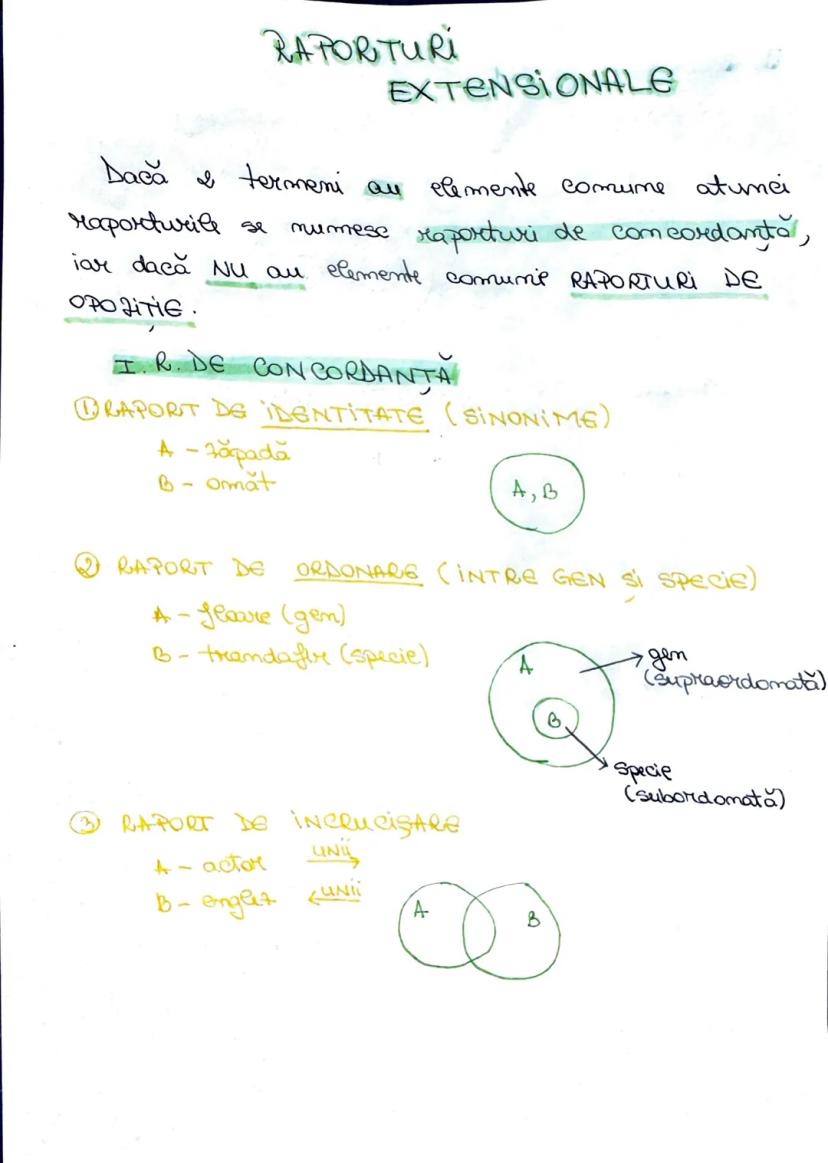 RAPORTURI
EXTENSIONALE
Dacă 2 termeni au elemente comune atunci
raporturile se numesc raporturi de concordanță,
iar dacă NU au elemente comune RAPORTURI DE
OPOZIȚIE.
I. R. DE CONCORDANȚĂ
① RAPORT DE IDENTITATE (SINONIME)
A - zăpadă
B - omăt
A, B
② RAPORT DE ORDONARE (INTRE GEN ȘI SPECIE)
A - floare (gen)
B - trandafir (specie)
A
gen
(supraordonată)
B
specie
(subordonată)
③ RAPORT DE INCRUCIȘARE
A - actor UNII
B - englez UNII
A B